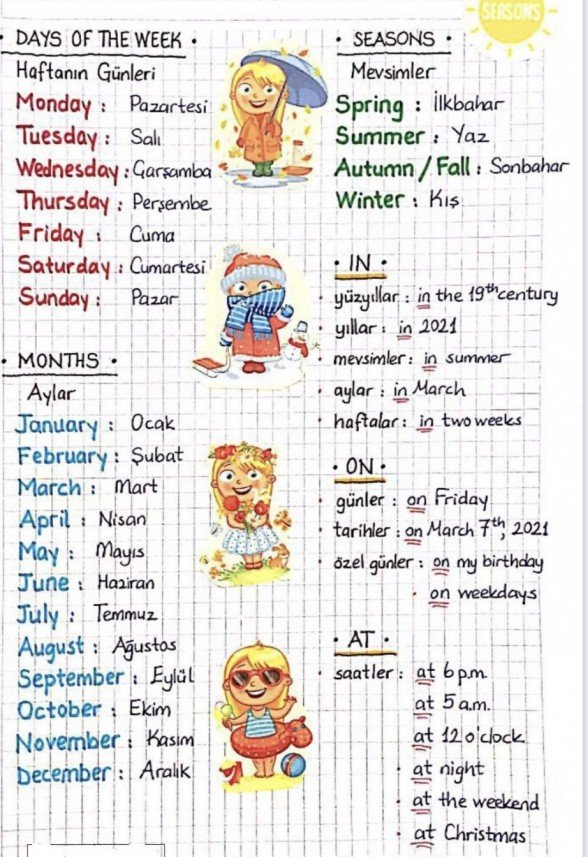 SEASONS
· DAYS OF THE WEEK ·
Haftanın Günleri
Monday : Pazartesi
Tuesday : Salı
Wednesday : Çarşamba
Thursday : Perşembe
Friday : Cuma
Saturday : Cumartesi
Sunday : Pazar
· MONTHS ·
Aylar
January : Ocak
February : Şubat
March : Mart
April : Nisan
May : Mayıs
June : Haziran
July : Temmuz
August : Ağustos
September : Eylül
October : Ekim
November : Kasım
December : Aralık
· SEASONS ·
Mevsimler
Spring : İlkbahar
Summer : Yaz
Autumn / Fall : Sonbahar
Winter : Kış
· IN ·
· yüzyıllar : in the 19th century
· yıllar : in 2021
· mevsimler : in summer
· aylar : in March
· haftalar : in two weeks
· ON ·
· günler : on Friday
· tarihler : on March 7th, 2021
· özel günler : on my birthday
· on weekdays
· AT ·
· saatler : at 6 p.m.
at 5 a.m.
at 12 o'clock
· at night
· at the weekend
· at Christmas